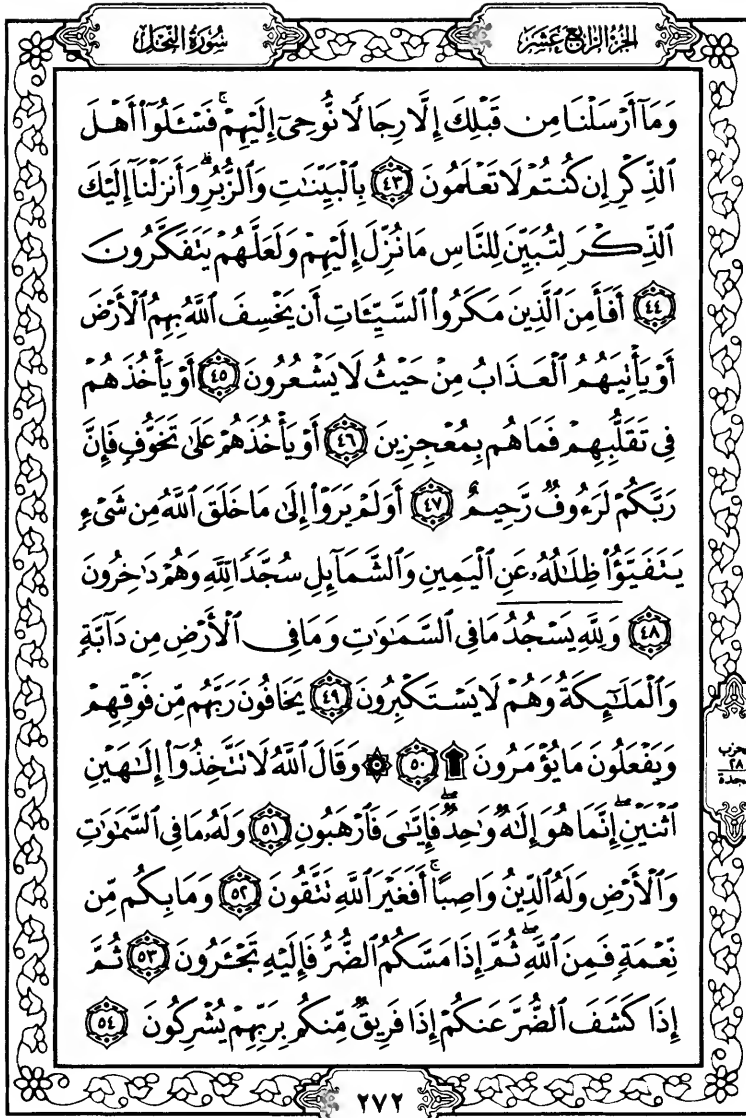 الجزء الرابع عشر
سورة النحل
وَمَآ أَرْسَلْنَا مِن قَبْلِكَ إِلَّا رِجَالًا نُّوحِىٓ إِلَيْهِمْ ۚ فَسْـَٔلُوٓا۟ أَهْلَ
ٱلذِّكْرِ إِن كُنتُمْ لَا تَعْلَمُونَ ٤٣ بِٱلْبَيِّنَٰتِ وَٱلزُّبُرِ ۗ وَأَنزَلْنَآ إِلَيْكَ
ٱلذِّكْرَ لِتُبَيِّنَ لِلنَّاسِ مَا نُزِّلَ إِلَيْهِمْ وَلَعَلَّهُمْ يَتَفَكَّرُونَ
٤٤ أَفَأَمِنَ ٱلَّذِينَ مَكَرُوا۟ ٱلسَّيِّـَٔاتِ أَن يَخْسِفَ ٱللَّهُ بِهِمُ ٱلْأَرْضَ
أَوْ يَأْتِيَهُمُ ٱلْعَذَابُ مِنْ حَيْثُ لَا يَشْعُرُونَ ٤٥ أَوْ يَأْخُذَهُمْ
فِى تَقَلُّبِهِمْ فَمَا هُم بِمُعْجِزِينَ ٤٦ أَوْ يَأْخُذَهُمْ عَلَىٰ تَخَوُّفٍ فَإِنَّ
رَبَّكُمْ لَرَءُوفٌ رَّحِيمٌ ٤٧ أَوَلَمْ يَرَوْا۟ إِلَىٰ مَا خَلَقَ ٱللَّهُ مِن شَىْءٍ
يَتَفَيَّؤُا۟ ظِلَٰلُهُۥ عَنِ ٱلْيَمِينِ وَٱلشَّمَآئِلِ سُجَّدًا لِّلَّهِ وَهُمْ دَٰخِرُونَ
٤٨ وَلِلَّهِ يَسْجُدُ مَا فِى ٱلسَّمَٰوَٰتِ وَمَا فِى ٱلْأَرْضِ مِن دَآبَّةٍ
وَٱلْمَلَٰٓئِكَةُ وَهُمْ لَا يَسْتَكْبِرُونَ ٤٩ يَخَافُونَ رَبَّهُم مِّن فَوْقِهِمْ
وَيَفْعَلُونَ مَا يُؤْمَرُونَ ۩ ٥٠ ۞ وَقَالَ ٱللَّهُ لَا تَتَّخِذُوٓا۟ إِلَٰهَيْنِ
ٱثْنَيْنِ ۖ إِنَّمَا هُوَ إِلَٰهٌ وَٰحِدٌ ۖ فَإِيَّٰىَ فَٱرْهَبُونِ ٥١ وَلَهُۥ مَا فِى ٱلسَّمَٰوَٰتِ
وَٱلْأَرْضِ وَلَهُ ٱلدِّينُ وَاصِبًا ۚ أَفَغَيْرَ ٱللَّهِ تَتَّقُونَ ٥٢ وَمَا بِكُم مِّن
نِّعْمَةٍ فَمِنَ ٱللَّهِ ۖ ثُمَّ إِذَا مَسَّكُمُ ٱلضُّرُّ فَإِلَيْهِ تَجْـَٔرُونَ ٥٣ ثُمَّ
إِذَا كَشَفَ ٱلضُّرَّ عَنكُمْ إِذَا فَرِيقٌ مِّنكُم بِرَبِّهِمْ يُشْرِكُونَ ٥٤
٢٨
٢٧٢